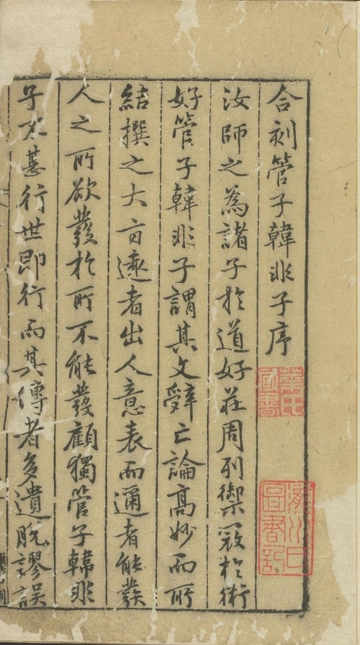 合刻管子韓非子序
汝師之為諸子於道好莊周列禦冦於術
好管子韓非子謂其文辭亡論高妙而所
結撰之大㫖遠者出人意表而邇者能發
人之所欲發於所不能發顧獨管子韓非
子不甚行世即行而其傳者多遺脫謬誤